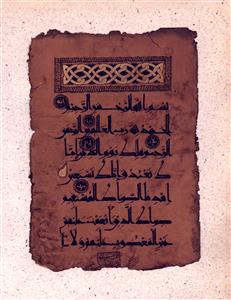 بسم الله الرحمن الرحيم
الحمد لله رب العالمين الرحمن
الرحيم ملك يوم الدين اياك
نعبد واياك نستعين
اهدنا الصراط المستقيم
صراط الذين انعمت عليهم
غير المغضوب عليهم ولا